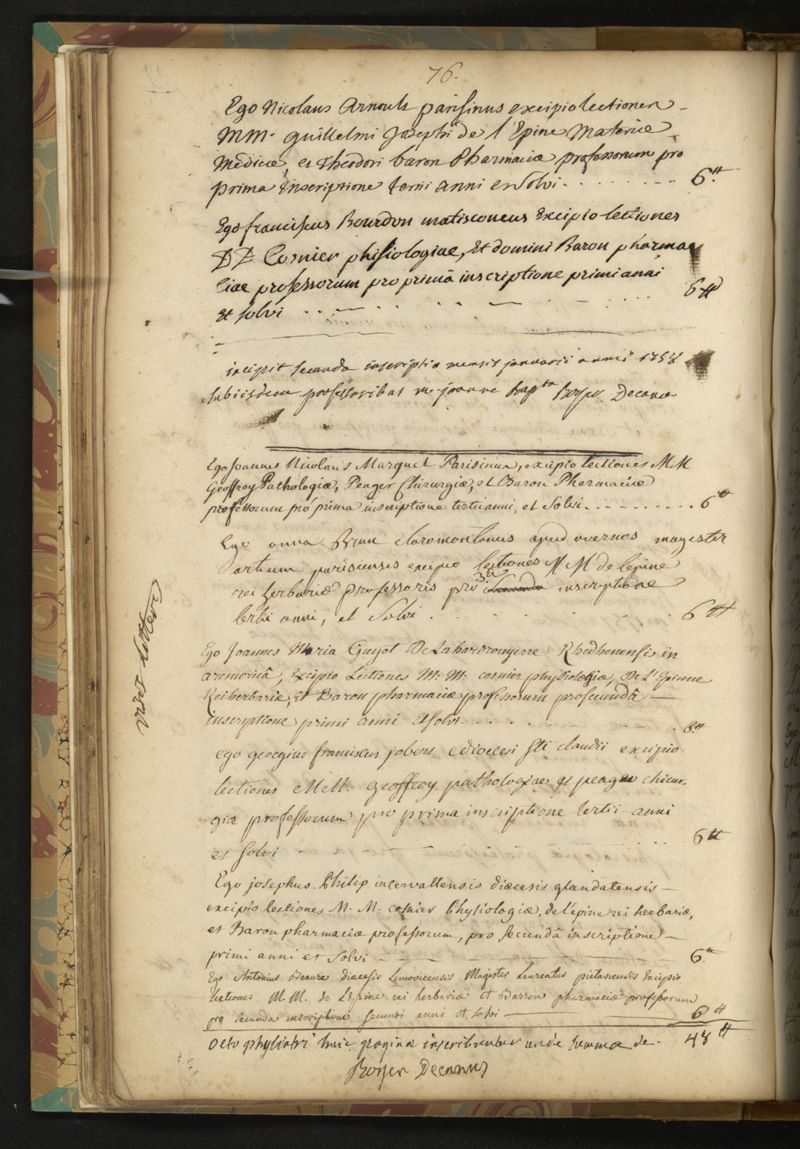 76.
Ego Nicolaus Arnoult parisinus excipio lectionen
MM. guillelmi Josephi de l'Epine Materiæ
Medicæ, et Theodori baron Pharmaciæ professorum pro
prima inscriptione terni anni et Solvi . . . . . . . . 6 ℔
Ego franciscus Bourdon matisconeus Excipio lectiones
DD Cosnier phisiologiae, Et domini Baron pharma
ciae professorum pro primâ inscriptione primi anni
et solvi . . . . . . 6 ℔
incipit secunda inscriptio mensis januarii anni 1758
Subiisdem professoribus m. joanne bap^ta Boyer Decano
Ego Joannes Nicolaus Marquet Parisinus, excipio lectiones MM
Geoffroy Pathologiæ, Peaget Chirurgiæ, et Baron Pharmaciæ
professorum pro prima inscriptione tertii anni, et Solvi . . . . . . . . . 6 ℔
Ego anna Brun claromontanus apud overnos magister
artium parisiensis excipio lectiones MM de lepine
rei herbariæ professoris pro 3a secunda inscriptione
tertii anni, et Solvi . . . . . 6 ℔
visa littera
Ego Joannes Maria Guyot De Rhedonensis in
aremoricâ, Excipio Lectiones M. M. cosnier physiologiæ, De L'Epinne
Rei herbariæ, et Baron pharmaciæ professorum pro secundâ
inscriptione primi anni &solvi . . . . . 6 ℔
ego georgius franciscus jobert e diocesi Sti claudii excipio
lectiones MM. geoffroy pathologiae et peaget chirur-
giæ professorum pro prima inscriptione tertii anni
et solvi . . . 6 ℔
Ego josephus Philip intervallensis diæcesis glandatensis
excipio lectiones M. M. cosnier Physiologiæ, de l'epine rei herbariæ,
et Baron pharmaciæ professorum, pro secundâ inscriptione
primi anni et Solvi 6 ℔
Ego Antonius diæcesis Lemovicensis Magister Laureatus pictaviensis Excipio
Lectiones M. M. de L'Epine rei herbariæ et Barron pharmaciæ professorum
pro secunda inscriptione secundi anni et solvi 6 ℔
octo physiatri huic paginæ inscribuntur unde summa de 48 ℔
Boyer Decanus